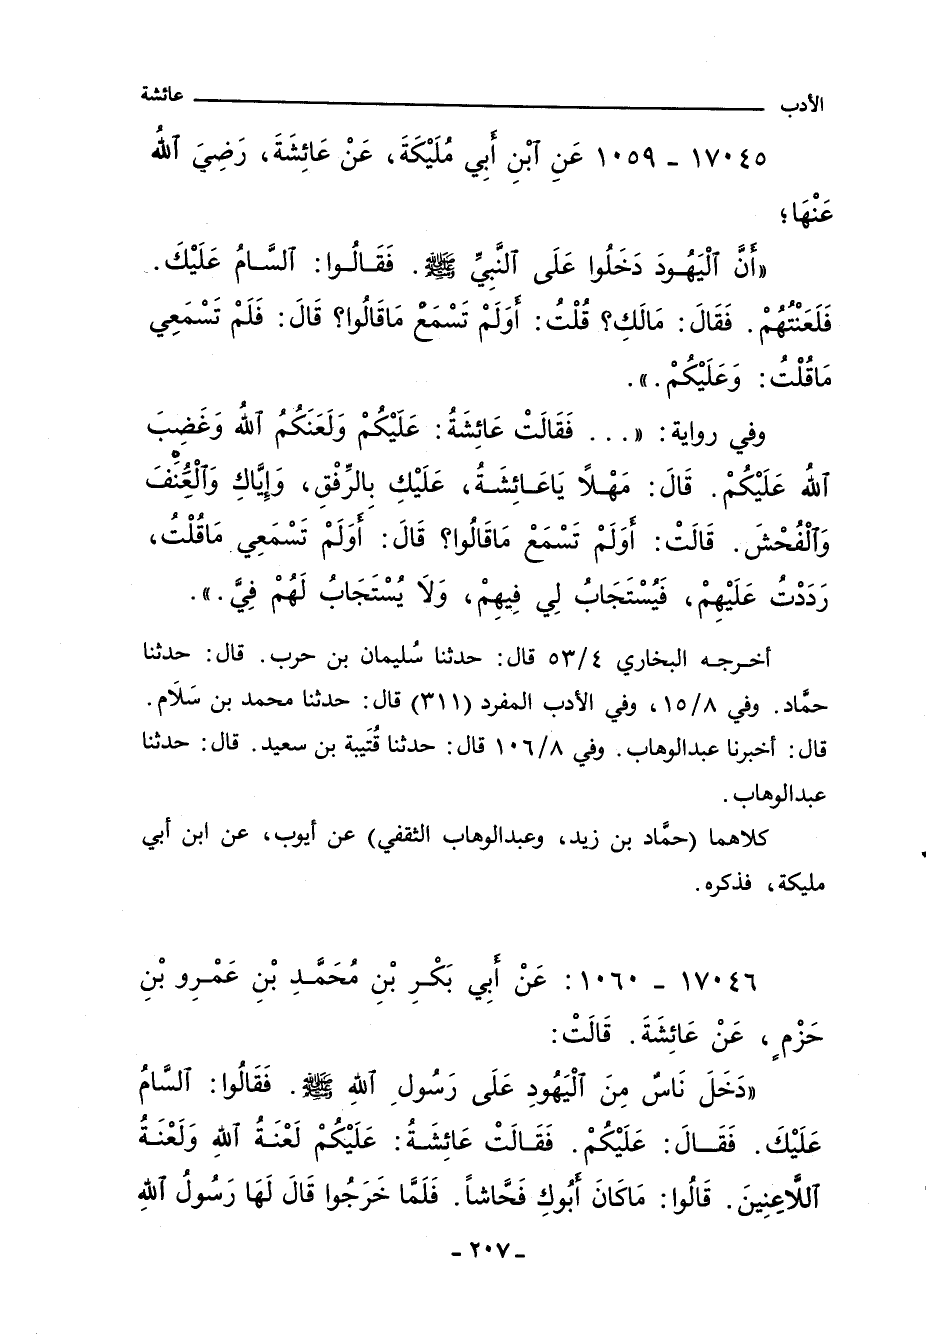 الأدب ــــــــــــــــــــــــــــــــــــــــ عائشة
١٧٠٤٥ - ١٠٥٩ عَنِ ٱبْنِ أَبِي مُلَيْكَةَ، عَنْ عَائِشَةَ، رَضِيَ ٱللهُ
عَنْهَا؛
«أَنَّ ٱلْيَهُودَ دَخَلُوا عَلَى ٱلنَّبِيِّ ﷺ. فَقَالُوا: ٱلسَّامُ عَلَيْكَ.
فَلَعَنْتُهُمْ. فَقَالَ: مَالَكِ؟ قُلْتُ: أَوَلَمْ تَسْمَعْ مَاقَالُوا؟ قَالَ: فَلَمْ تَسْمَعِي
مَاقُلْتُ: وَعَلَيْكُمْ.».
وفي رواية: «... فَقَالَتْ عَائِشَةُ: عَلَيْكُمْ وَلَعَنَكُمُ ٱللهُ وَغَضِبَ
ٱللهُ عَلَيْكُمْ. قَالَ: مَهْلًا يَاعَائِشَةُ، عَلَيْكِ بِالرِّفْقِ، وَإِيَّاكِ وَٱلْعُنْفَ
وَٱلْفُحْشَ. قَالَتْ: أَوَلَمْ تَسْمَعْ مَاقَالُوا؟ قَالَ: أَوَلَمْ تَسْمَعِي مَاقُلْتُ،
رَدَدْتُ عَلَيْهِمْ، فَيُسْتَجَابُ لِي فِيهِمْ، وَلَا يُسْتَجَابُ لَهُمْ فِيَّ.».
أخرجه البخاري ٥٣/٤ قال: حدثنا سُليمان بن حرب. قال: حدثنا
حمَّاد. وفي ١٥/٨، وفي الأدب المفرد (٣١١) قال: حدثنا محمد بن سَلَام.
قال: أخبرنا عبدالوهاب. وفي ١٠٦/٨ قال: حدثنا قُتَيبة بن سعيد. قال: حدثنا
عبدالوهاب.
كلاهما (حمَّاد بن زيد، وعبدالوهاب الثقفي) عن أيوب، عن ابن أبي
مليكة، فذكره.
١٧٠٤٦ - ١٠٦٠: عَنْ أَبِي بَكْرِ بْنِ مُحَمَّدِ بْنِ عَمْرِو بْنِ
حَزْمٍ، عَنْ عَائِشَةَ. قَالَتْ:
«دَخَلَ نَاسٌ مِنَ ٱلْيَهُودِ عَلَى رَسُولِ ٱللهِ ﷺ. فَقَالُوا: ٱلسَّامُ
عَلَيْكَ. فَقَالَ: عَلَيْكُمْ. فَقَالَتْ عَائِشَةُ: عَلَيْكُمْ لَعْنَةُ ٱللهِ وَلَعْنَةُ
ٱللَّاعِنِينَ. قَالُوا: مَاكَانَ أَبُوكِ فَحَّاشاً. فَلَمَّا خَرَجُوا قَالَ لَهَا رَسُولُ ٱللهِ
- ٢٠٧ -